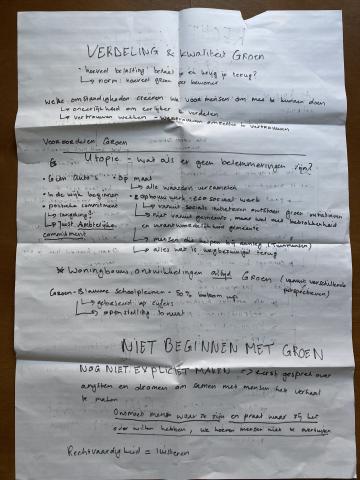 VERDELING & kwaliteit GROEN
• hoeveel belasting betaal je en krijg je terug?
↳ norm: hoeveel groen per bewoner
welke omstandigheden creëren we voor mensen om mee te kunnen doen
↳ oneerlijkheid om eerlijker te verdelen
↳ vertrouwen wekken - vertrouwen
Voorwaarden Groen
Utopie - wat als er geen belemmeringen zijn?
• Geen auto's • Op maat
↳ alle waarden verzamelen
• In de wijk beginnen • opbouwwerk - sociaal werk
• politieke commitment ↳ vanuit sociale initiatieven ontstaan groen initiatieven
↳ langdurig! ↳ niet vanuit gemeente, maar wel met betrokkenheid
↳ Juist Ambtelijke en verantwoordelijkheid gemeente
commitment ↳ mensen die helpen bij aanleg (tuinmannen)
↳ alles wat is wegbezuinigd terug
* Woningbouw, ontwikkelingen altijd Groen (vanuit verschillende
perspectieven)
Groen-Blauwe Schoolpleinen - 50% bottom up
↳ gebaseerd op cijfers
↳ openstelling buurt
NIET BEGINNEN MET GROEN
NOG NIET EXPLICIET MAKEN => eerst gesprek over
angsten en dromen om samen met mensen het verhaal
te maken
Ontmoet mensen waar ze zijn en praat waar zij het
over willen hebben, we hoeven mensen niet te overtuigen
Rechtvaardigheid = luisteren